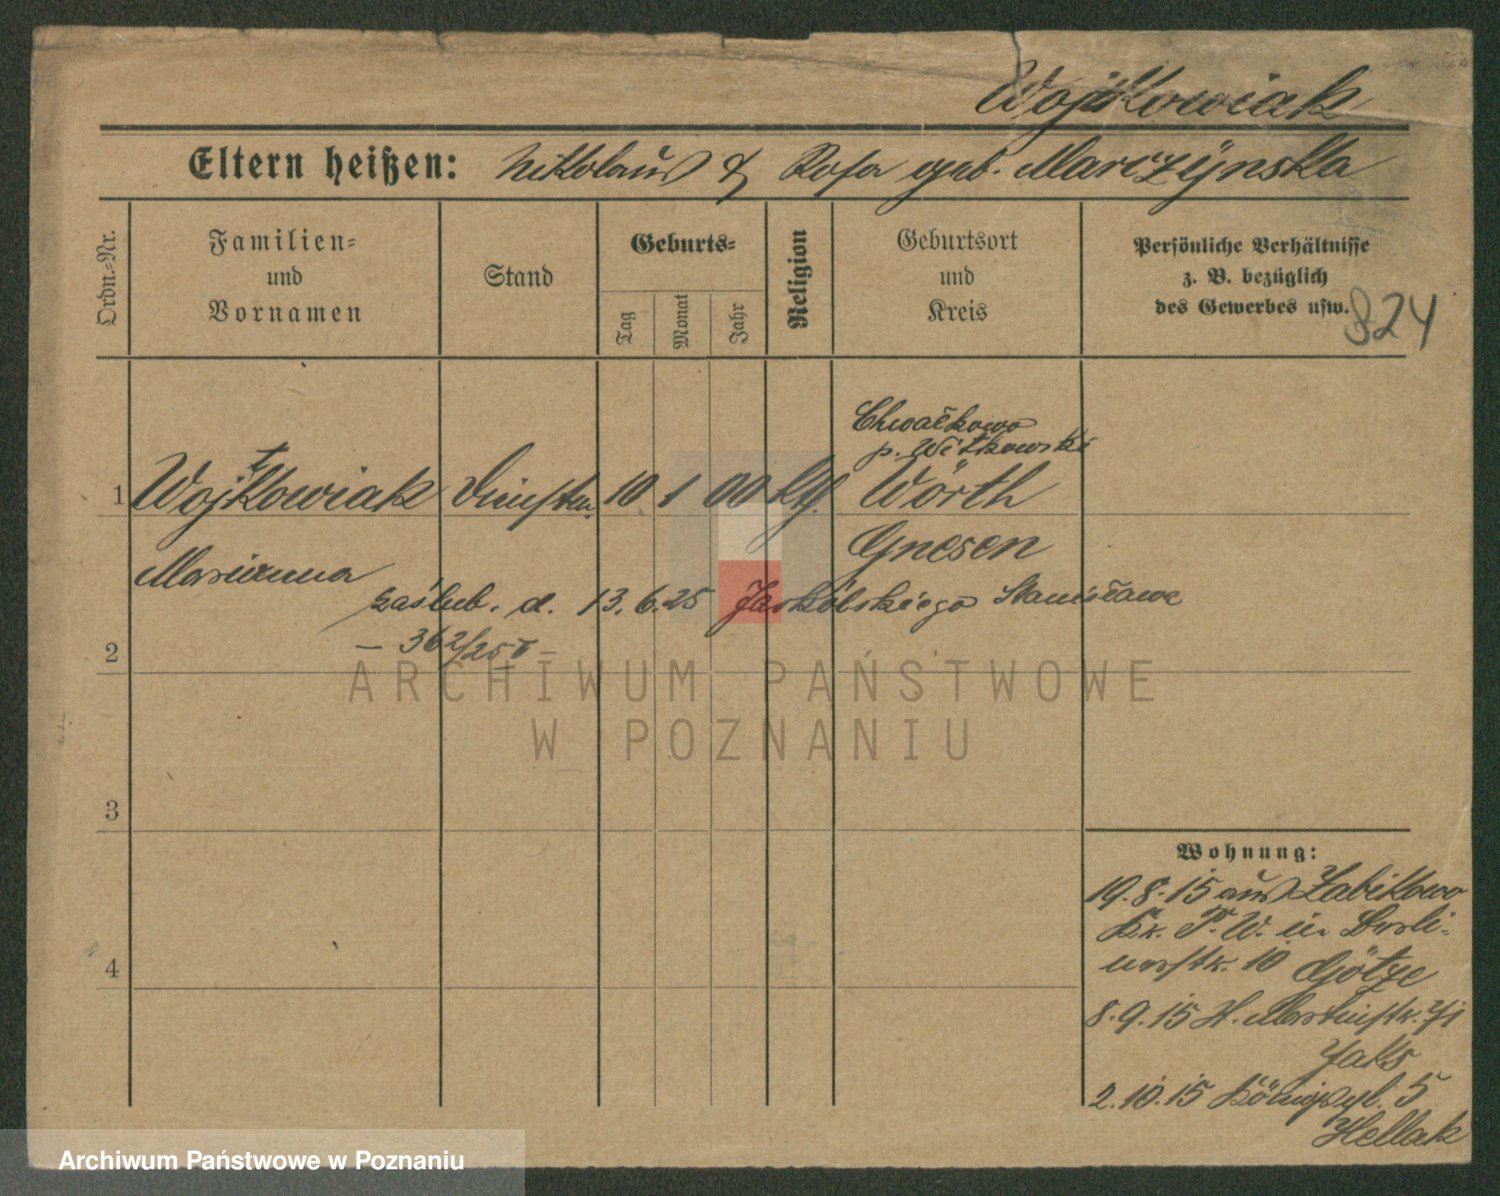 Wojtkowiak
Eltern heißen: Nikolaus & Rosa geb. Marczynska
Ordn.-Nr.
Familien-
und
Vornamen
Stand
Geburts-
Tag
Monat
Jahr
Religion
Geburtsort
und
Kreis
Persönliche Verhältnisse
z. B. bezüglich
des Gewerbes usw.
824
Chwałkowo
p. Witkowski
1 Wojtkowiak 10 1 00 ktl. Wörth
Gnesen
Marianna
zaślub. d. 13.6.25 Jaskólskiego Stanisława
2
– 362/25
3
4
Wohnung:
19.8.15 aus Zabikowo
Kr. P. W. in Berli-
nerstr. 10 Götze
8.9.15 St. Martinstr.
Jaks
2.10.15 Königspl. 5
Hellak
ARCHIWUM PAŃSTWOWE
W POZNANIU
Archiwum Państwowe w Poznaniu